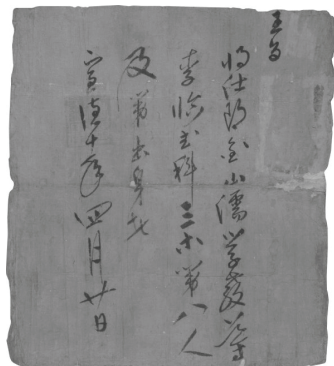 王旨
將仕郎金山儒學教導
李臨科三等第八人
及第出身者
宣德十年四月廿日